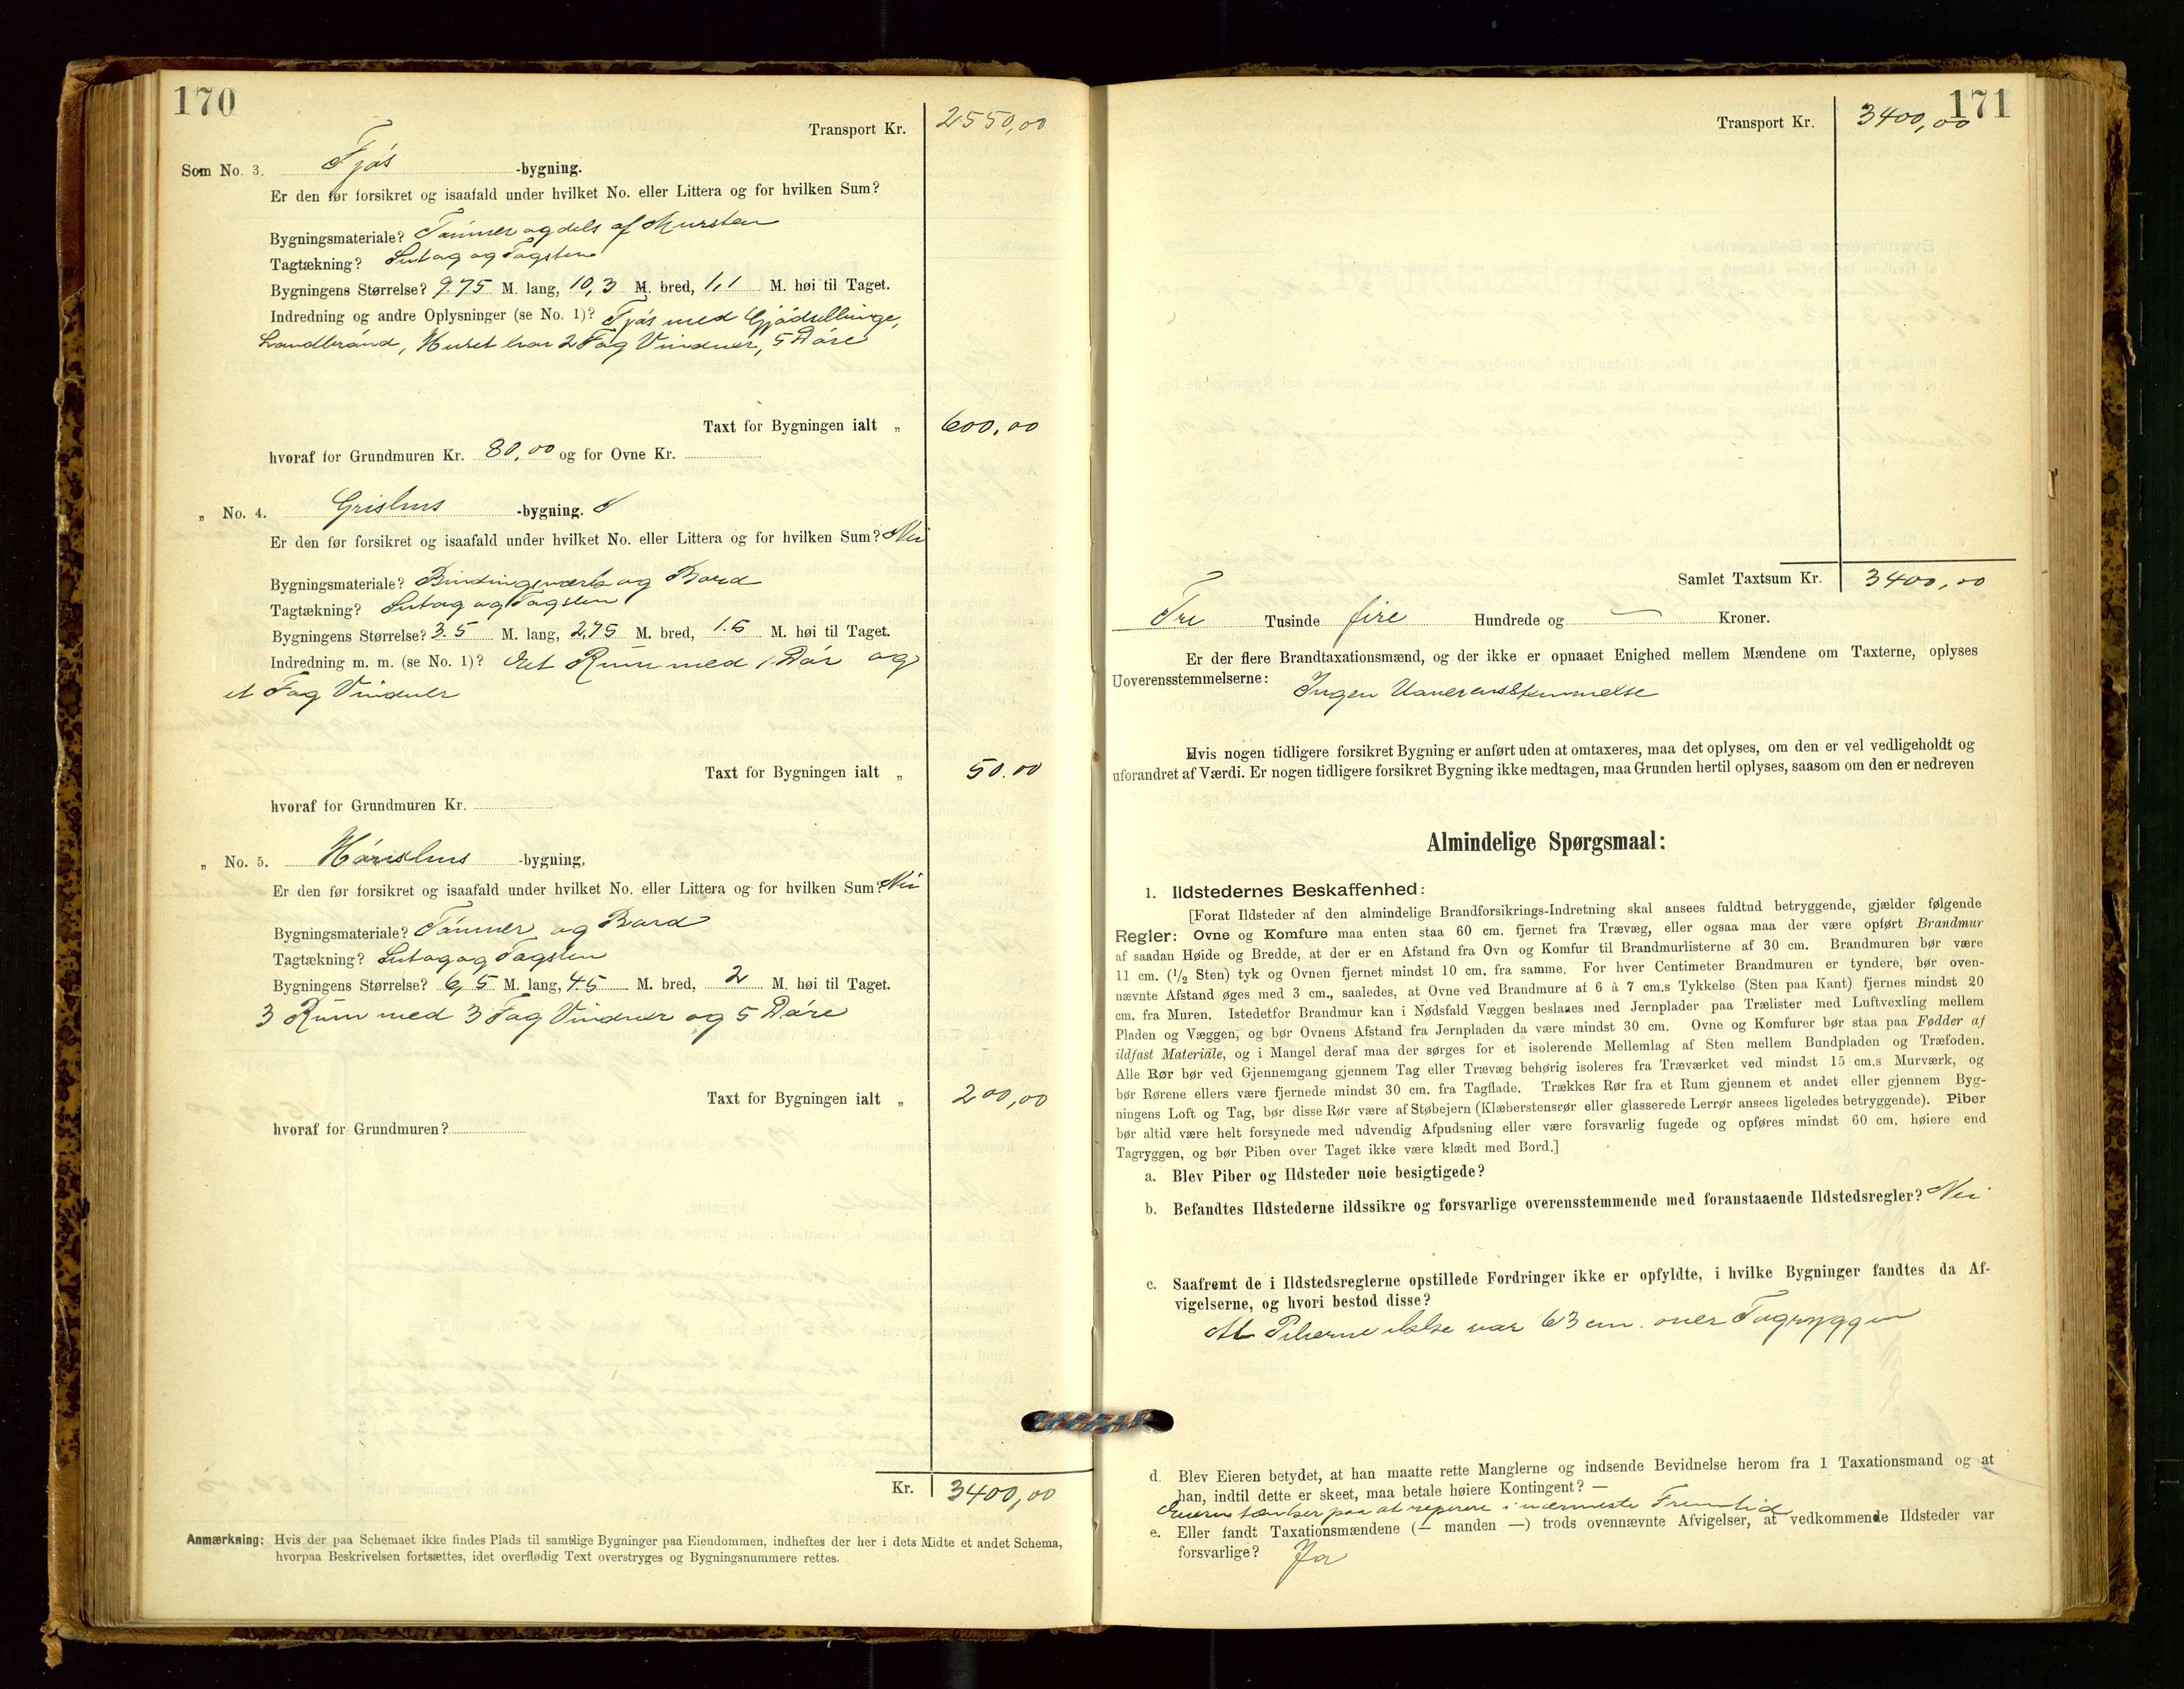 170
Transport Kr. 2550,00
Som No. 3. Fjös -bygning.
Er den før forsikret og isaafald under hvilket No. eller Littera og for hvilken Sum?
Bygningsmateriale? Tömmer og dels af Mursten
Tagtækning? Sutag og Tagsten
Bygningens Størrelse? 9.75 M. lang, 10,3 M. bred, 1,1 M. høi til Taget.
Indredning og andre Oplysninger (se No. 1)? Fjös med
Huset har 2 Fag Vinduer, 5 Döre
Taxt for Bygningen ialt „ 600,00
hvoraf for Grundmuren Kr. 80,00 og for Ovne Kr.
„ No. 4. Grishus -bygning.
Er den før forsikret og isaafald under hvilket No. eller Littera og for hvilken Sum? Nei
Bygningsmateriale? Bindingsværk og Bord
Tagtækning? Sutag og Tagsten
Bygningens Størrelse? 3.5 M. lang, 2,75 M. bred, 1.6 M. høi til Taget.
Indredning m. m. (se No. 1)? Et Rum med 1 Dör og
et Fag Vinduer
Taxt for Bygningen ialt „ 50.00
hvoraf for Grundmuren Kr.
„ No. 5. Hönshus -bygning,
Er den før forsikret og isaafald under hvilket No. eller Littera og for hvilken Sum? Nei
Bygningsmateriale? Tömmer og Bord
Tagtækning? Sutag og Tagsten
Bygningens Størrelse? 6,5 M. lang, 4.5 M. bred, 2 M. høi til Taget.
3 Rum med 3 Fag Vinduer og 5 Döre
Taxt for Bygningen ialt „ 200,00
hvoraf for Grundmuren?
Kr. 3400,00
Anmærkning: Hvis der paa Schemaet ikke findes Plads til samtlige Bygninger paa Eiendommen, indheftes der her i dets Midte et andet Schema,
hvorpaa Beskrivelsen fortsættes, idet overflødig Text overstryges og Bygningsnummere rettes.
171
Transport Kr. 3400,00
Samlet Taxtsum Kr. 3400,00
Tre Tusinde fire Hundrede og — Kroner.
Er der flere Brandtaxationsmænd, og der ikke er opnaaet Enighed mellem Mændene om Taxterne, oplyses
Uoverensstemmelserne: Ingen Uoverensstemmelse
Hvis nogen tidligere forsikret Bygning er anført uden at omtaxeres, maa det oplyses, om den er vel vedligeholdt og
uforandret af Værdi. Er nogen tidligere forsikret Bygning ikke medtagen, maa Grunden hertil oplyses, saasom om den er nedreven
Almindelige Spørgsmaal:
1. Ildstedernes Beskaffenhed:
[Forat Ildsteder af den almindelige Brandforsikrings-Indretning skal ansees fuldtud betryggende, gjælder følgende
Regler: Ovne og Komfure maa enten staa 60 cm. fjernet fra Trævæg, eller ogsaa maa der være opført Brandmur
af saadan Høide og Bredde, at der er en Afstand fra Ovn og Komfur til Brandmurlisterne af 30 cm. Brandmuren bør være
11 cm. (½ Sten) tyk og Ovnen fjernet mindst 10 cm. fra samme. For hver Centimeter Brandmuren er tyndere, bør oven-
nævnte Afstand øges med 3 cm., saaledes, at Ovne ved Brandmure af 6 à 7 cm.s Tykkelse (Sten paa Kant) fjernes mindst 20
cm. fra Muren. Istedetfor Brandmur kan i Nødsfald Væggen beslaaes med Jernplader paa Trælister med Luftvexling mellem
Pladen og Væggen, og bør Ovnens Afstand fra Jernpladen da være mindst 30 cm. Ovne og Komfurer bør staa paa Fødder af
ildfast Materiale, og i Mangel deraf maa der sørges for et isolerende Mellemlag af Sten mellem Bundpladen og Træfoden.
Alle Rør bør ved Gjennemgang gjennem Tag eller Trævæg behørig isoleres fra Træværket ved mindst 15 cm.s Murværk, og
bør Rørene ellers være fjernede mindst 30 cm. fra Tagflade. Trækkes Rør fra et Rum gjennem et andet eller gjennem Byg-
ningens Loft og Tag, bør disse Rør være af Støbejern (Klæberstensrør eller glasserede Lerrør ansees ligeledes betryggende). Piber
bør altid være helt forsynede med udvendig Afpudsning eller være forsvarlig fugede og opføres mindst 60 cm. høiere end
Tagryggen, og bør Piben over Taget ikke være klædt med Bord.]
a. Blev Piber og Ildsteder nøie besigtigede?
b. Befandtes Ildstederne ildssikre og forsvarlige overensstemmende med foranstaaende Ildstedsregler? Nei
c. Saafremt de i Ildstedsreglerne opstillede Fordringer ikke er opfyldte, i hvilke Bygninger fandtes da Af-
vigelserne, og hvori bestod disse?
At Piberne ikke var 63 cm. over Tagryggen
d. Blev Eieren betydet, at han maatte rette Manglerne og indsende Bevidnelse herom fra 1 Taxationsmand og at
han, indtil dette er skeet, maa betale høiere Kontingent? —
Eieren tænker paa at reparere i nærmeste Fremtid
e. Eller fandt Taxationsmændene (— manden —) trods ovennævnte Afvigelser, at vedkommende Ildsteder var
forsvarlige? Ja